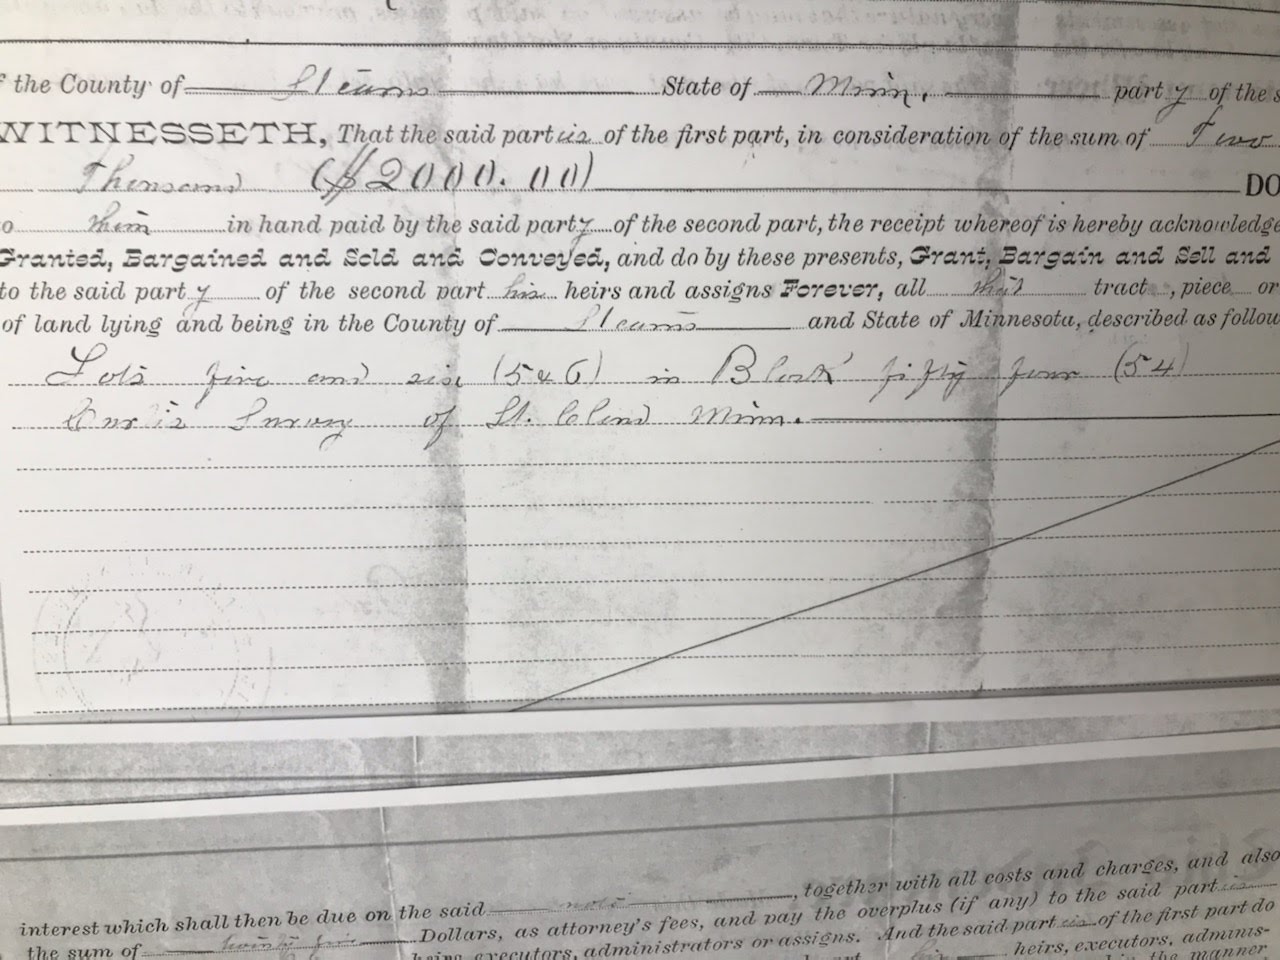 f the County of Stearns State of Minn. party of the s
WITNESSETH, That the said parties of the first part, in consideration of the sum of Two
Thousand ($2000.00) DO
to them in hand paid by the said party of the second part, the receipt whereof is hereby acknowledge
Granted, Bargained and Sold and Conveyed, and do by these presents, Grant, Bargain and Sell and
to the said party of the second part his heirs and assigns Forever, all that tract , piece or
of land lying and being in the County of Stearns and State of Minnesota, described as follow
Lots five and six (5 & 6) in Block fifty four (54)
Survey of St. Cloud Minn.
, together with all costs and charges, and also
interest which shall then be due on the said note Dollars, as attorney's fees, and pay the overplus (if any) to the said part
the sum of twenty five heirs, executors, administrators or assigns. And the said parties of the first part do
heirs, executors, adminis-
the manner